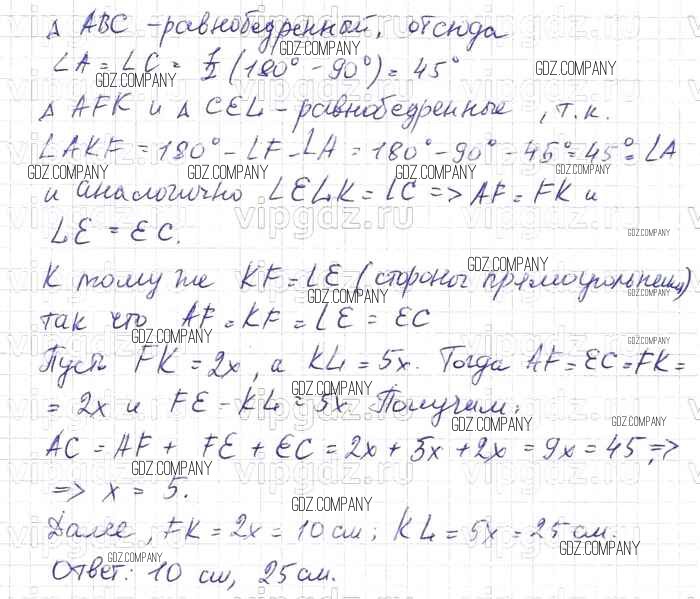 Δ ABC - равнобедренный, отсюда
∠A = ∠C = 1/2 (180° - 90°) = 45°
Δ AFK и Δ CEL - равнобедренные, т.к.
∠AKF = 180° - ∠F - ∠A = 180° - 90° - 45° = 45° = ∠A
и аналогично ∠ELK = ∠C => AF = FK и
LE = EC.
К тому же KF = LE (стороны прямоугольника)
так что AF = KF = LE = EC
Пусть FK = 2x, а KL = 5x. Тогда AF = EC = FK =
= 2x и FE - KL = 5x. Получим:
AC = AF + FE + EC = 2x + 5x + 2x = 9x = 45 =>
=> x = 5.
Далее, FK = 2x = 10 см; KL = 5x = 25 см.
Ответ: 10 см, 25 см.
GDZ.COMPANY
vipgdz.ru